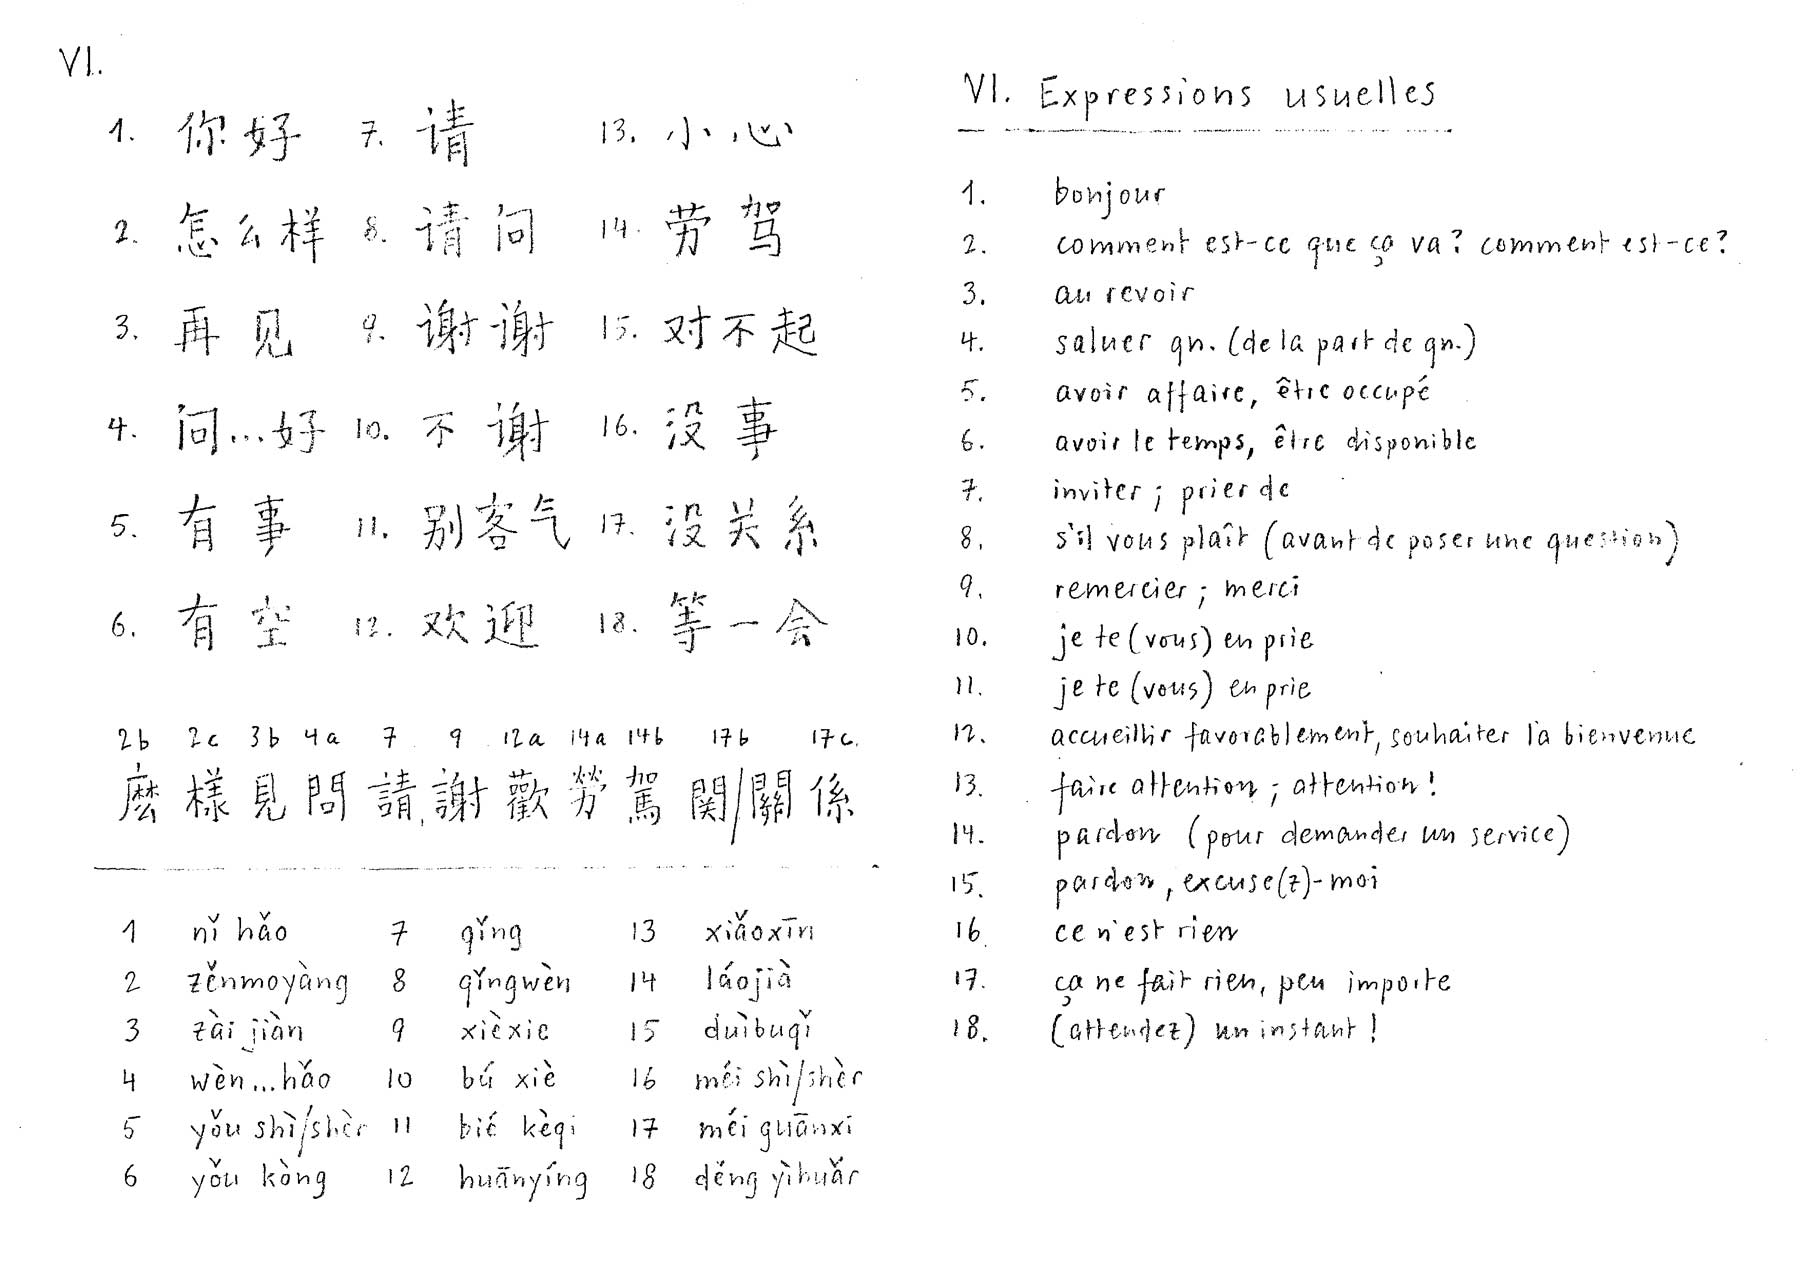 VI.
1. 你好 7. 请 13. 小心
2. 怎么样 8. 请问 14. 劳驾
3. 再见 9. 谢谢 15. 对不起
4. 问...好 10. 不谢 16. 没事
5. 有事 11. 别客气 17. 没关系
6. 有空 12. 欢迎 18. 等一会
2b 2c 3b 4a 7 9 12a 14a 14b 17b 17c.
麼 樣 見 問 請 謝 歡 勞 駕 関/關 係
1 nǐ hǎo 7 qǐng 13 xiǎoxīn
2 zěnmoyàng 8 qǐngwèn 14 láojià
3 zàijiàn 9 xièxie 15 duìbuqǐ
4 wèn...hǎo 10 bú xiè 16 méi shì/shèr
5 yǒu shì/shèr 11 bié kèqi 17 méi guānxi
6 yǒu kòng 12 huānyíng 18 děng yìhuǎr
VI. Expressions usuelles
1. bonjour
2. comment est-ce que ça va? comment est-ce?
3. au revoir
4. saluer qn. (de la part de qn.)
5. avoir affaire, être occupé
6. avoir le temps, être disponible
7. inviter; prier de
8. s'il vous plaît (avant de poser une question)
9. remercier; merci
10. je te (vous) en prie
11. je te (vous) en prie
12. accueillir favorablement, souhaiter la bienvenue
13. faire attention; attention!
14. pardon (pour demander un service)
15. pardon, excuse(z)-moi
16 ce n'est rien
17. ça ne fait rien, peu importe
18. (attendez) un instant!